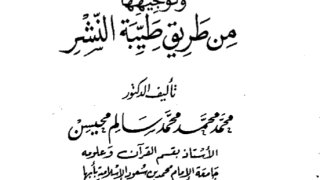 وتوجيهها
مِن طَرِيق طَيِّبَة النَّشْر
تأليف الدكتور
محمد محمد محمد سالم محيسن
الأستاذ بقسم القرآن وعلومه
جامعة الإمام محمد بن سعود الإسلامية بأبها